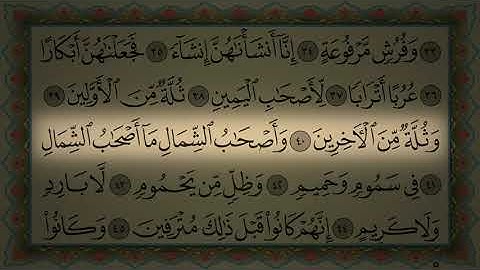 ٣٣ وَفُرُشٍ مَّرْفُوعَةٍ ٣٤ إِنَّآ أَنشَأْنَٰهُنَّ إِنشَآءً ٣٥ فَجَعَلْنَٰهُنَّ أَبْكَارًا
٣٦ عُرُبًا أَتْرَابًا ٣٧ لِّأَصْحَٰبِ ٱلْيَمِينِ ٣٨ ثُلَّةٌ مِّنَ ٱلْأَوَّلِينَ ٣٩
وَثُلَّةٌ مِّنَ ٱلْأَخِرِينَ ٤٠ وَأَصْحَٰبُ ٱلشِّمَالِ مَآ أَصْحَٰبُ ٱلشِّمَالِ
٤١ فِى سَمُومٍ وَحَمِيمٍ ٤٢ وَظِلٍّ مِّن يَحْمُومٍ ٤٣ لَّا بَارِدٍ
وَلَا كَرِيمٍ ٤٤ إِنَّهُمْ كَانُوا۟ قَبْلَ ذَٰلِكَ مُتْرَفِينَ ٤٥ وَكَانُوا۟